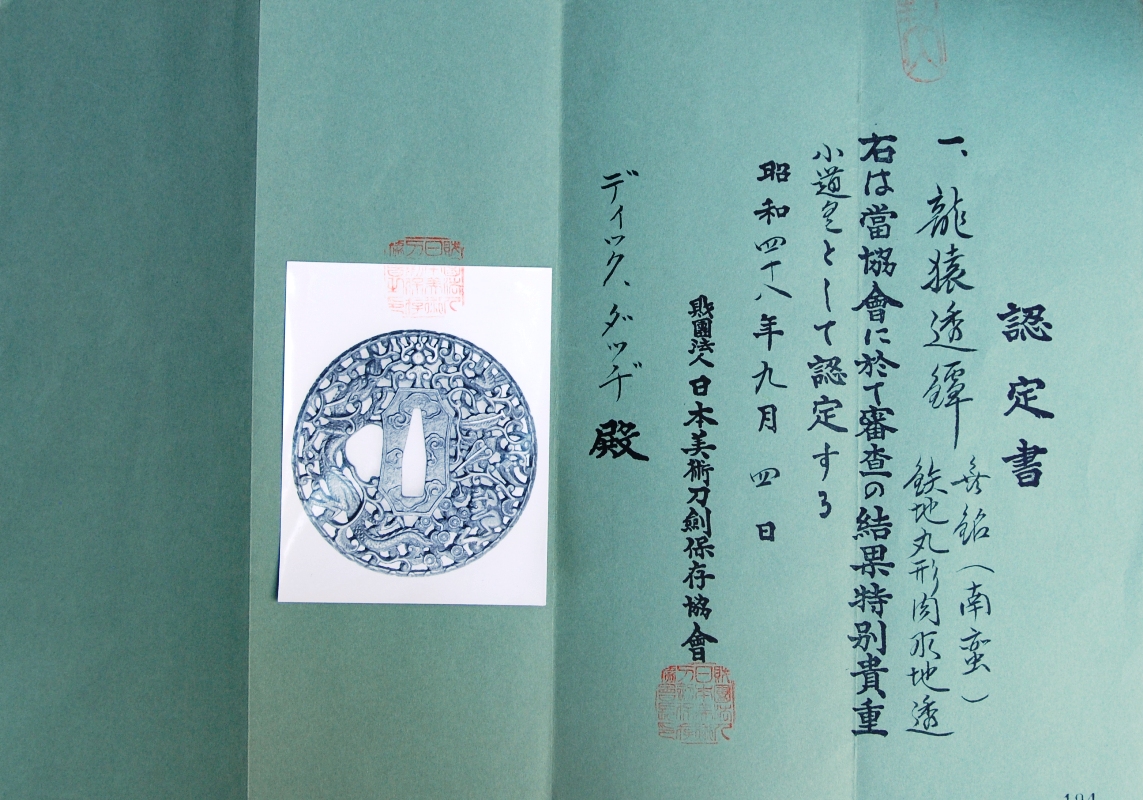 認定書
一、龍猿透鐔
無銘(南蛮)
鉄地丸形肉彫地透
右は當協會に於て審査の結果特別貴重
小道具として認定する
昭和四十八年九月四日
財團法人日本美術刀劍保存協會
ディック、ダッヂ殿